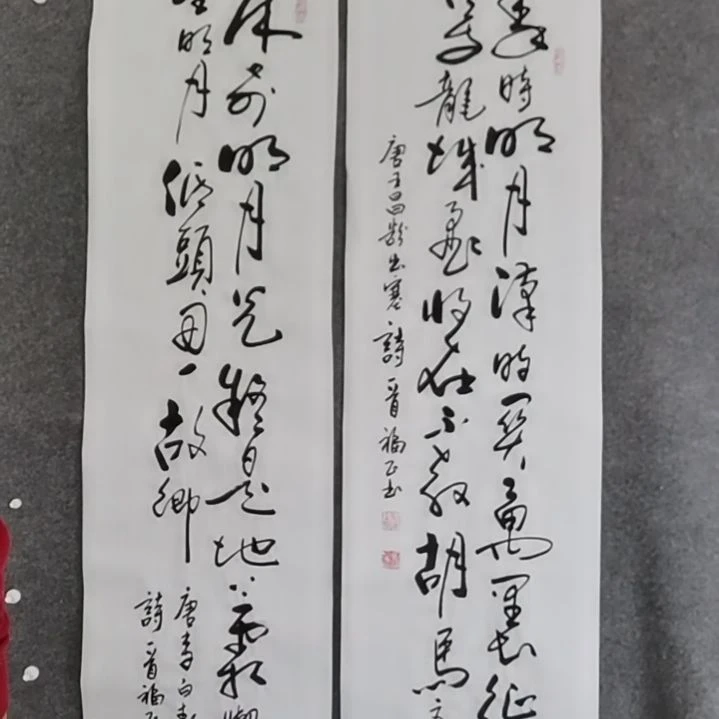 秦時明月漢時關萬里長征
龍城飛將在不教胡馬
唐王昌齡出塞詩一首福正书
床前明月光疑是地上霜
明月低頭思故鄉
唐李白
詩一首福